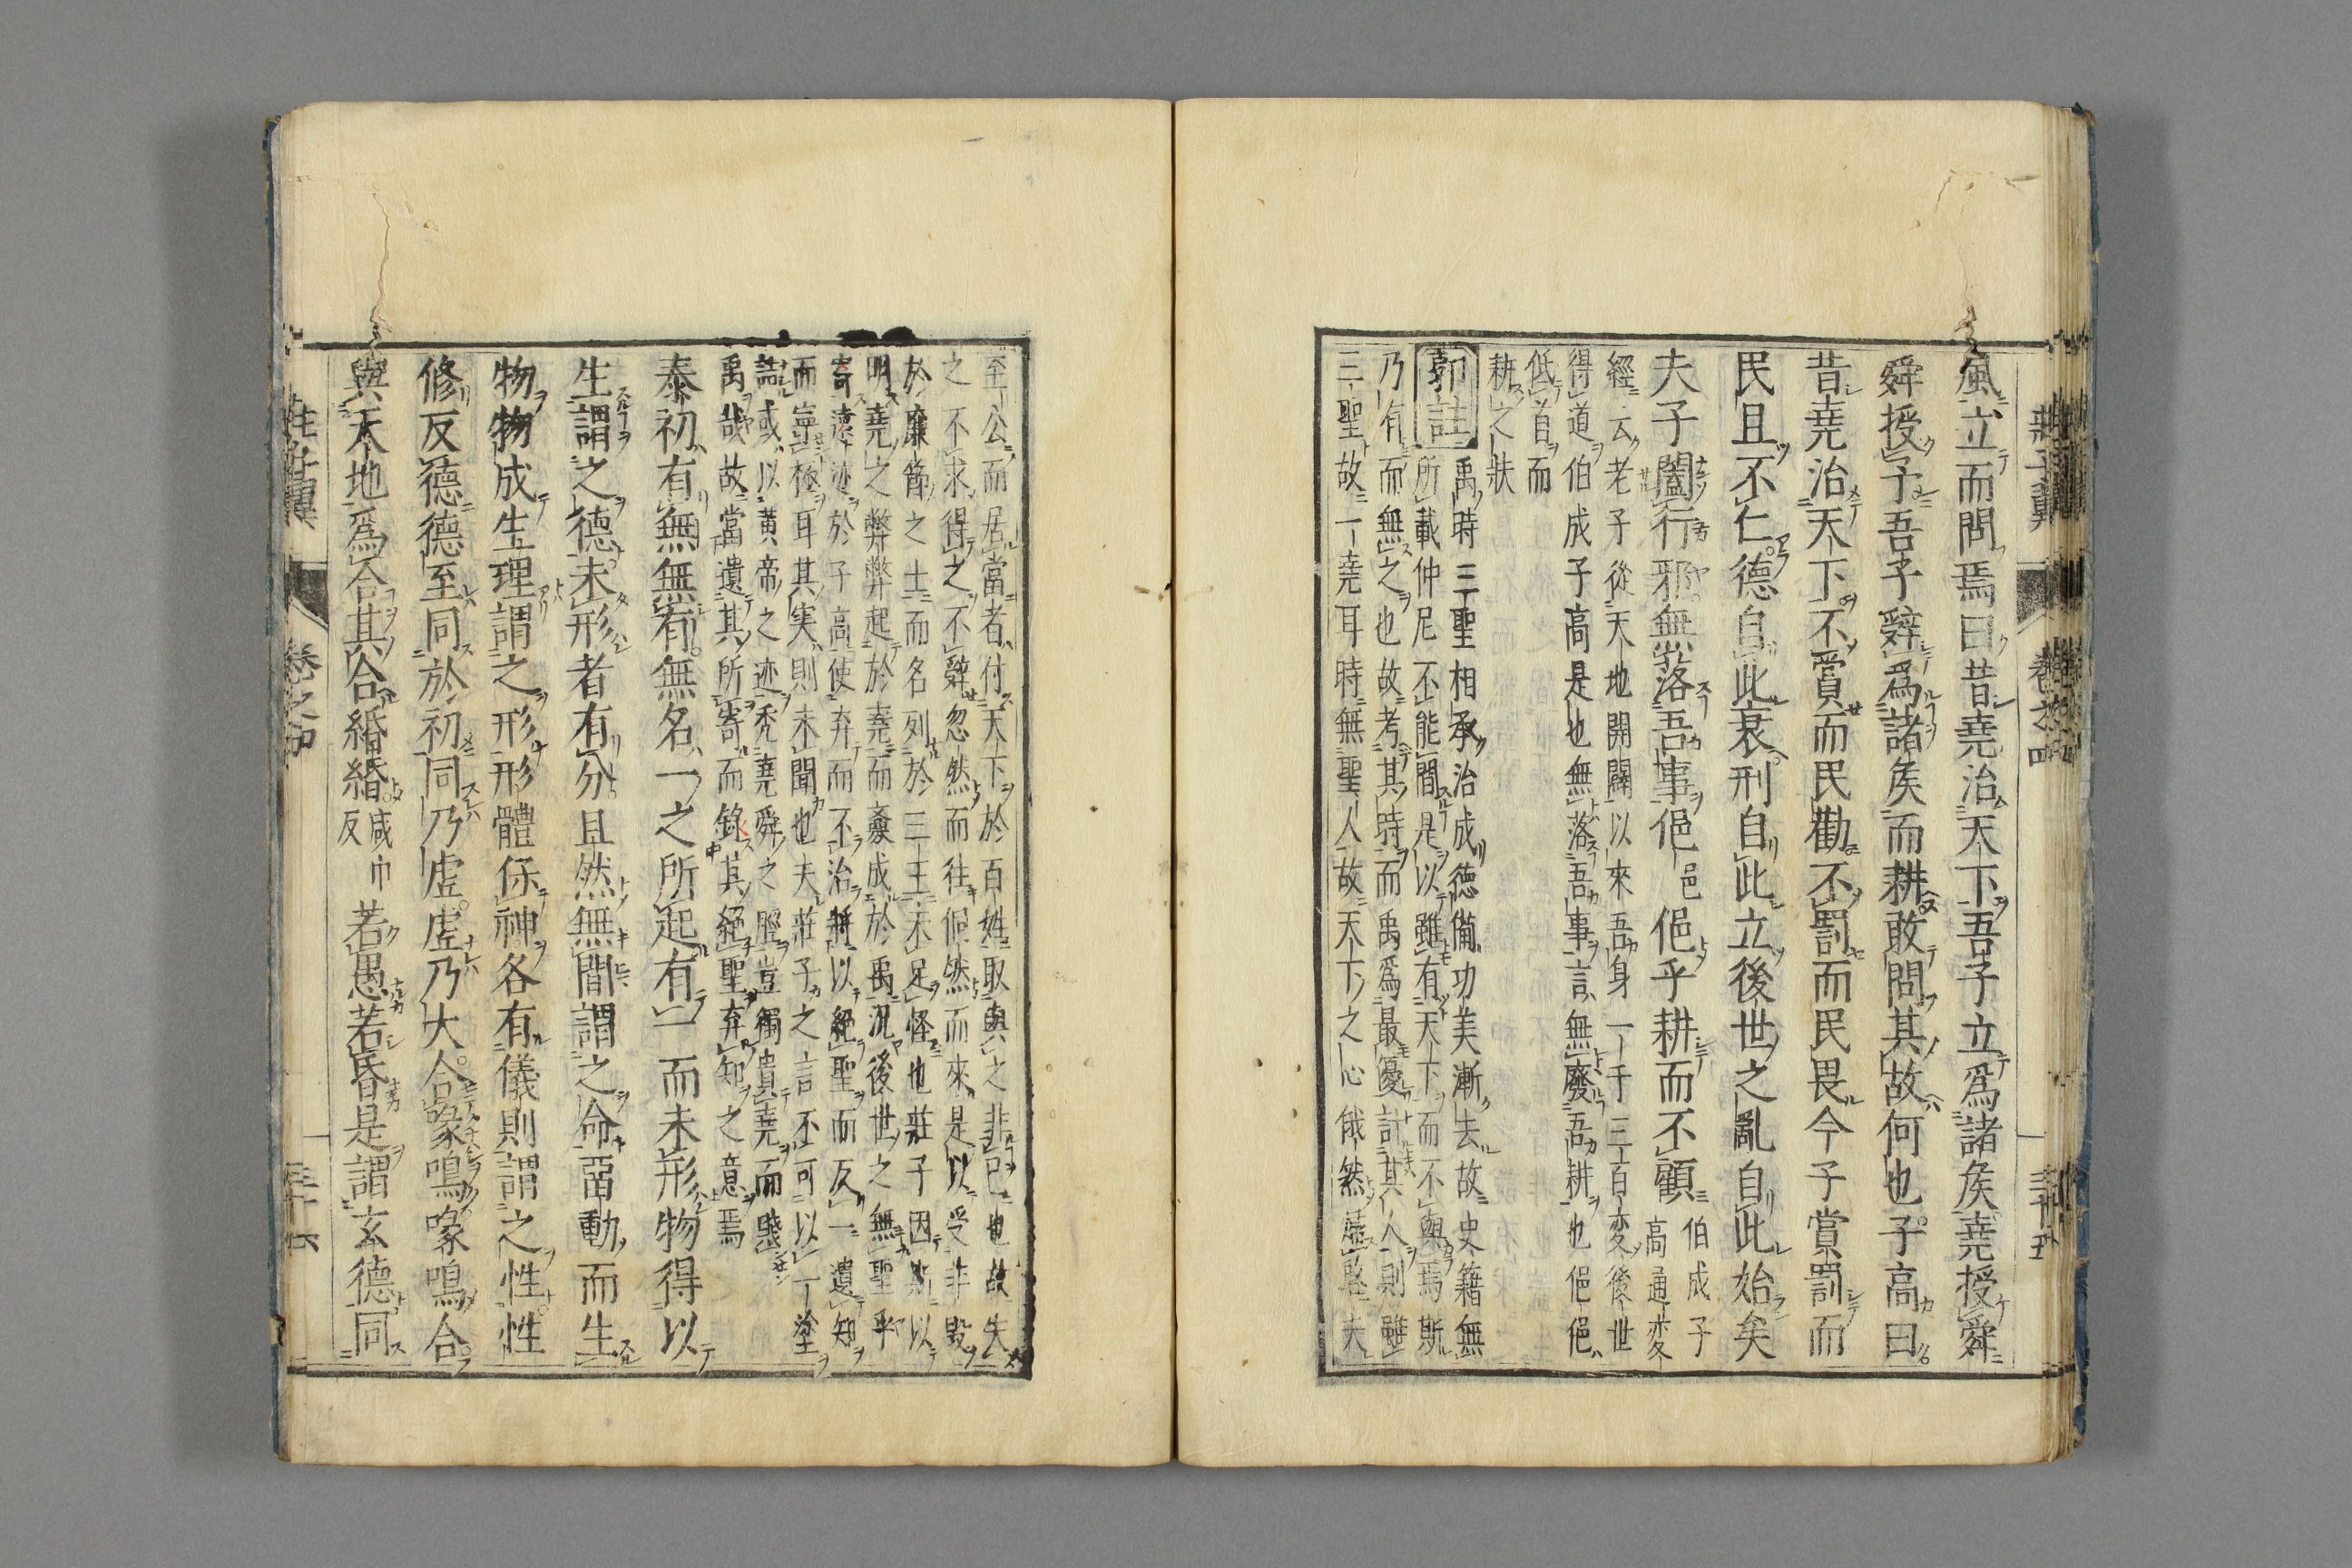 風立而問焉曰昔堯治天下吾子立爲諸矦堯授舜
舜授予吾子辭爲諸矦而耕敢問其故何也子高曰
昔堯治天下不賞而民勸不罰而民畏今子賞罰而
民且不仁德自此衰刑自此立後世之亂自此始矣
夫子闔行邪無落吾事俋邑俋乎耕而不顧伯成子
高通変
經云老子從天地開闢以來吾身一千三百変後世
得道伯成子高是也無落吾事言無廢吾耕也俋俋
低首而
耕之狀
郭註禹時三聖相承治成德備功美漸去故史籍無
所載仲尼不能間是以雖有天下而不與焉斯
乃有而無之也故考其時而禹爲最優計其人則雖
三聖故一堯耳時無聖人故天下之心俄然啓夫
莊子翼 卷之四 三十五
至公而居當者付天下於百姓取與之非已也故失
之不求得之不辭忽然而往侗然而來是以受非毀
於廉節之士而名列於三王未足怪也莊子因斯以
明堯之弊弊起於堯而釁成於禹況後世之無聖乎
寄遠迹於子高使弃而不治將以絕聖而反一遺知
而寧極耳其実則未聞也夫莊子之言不可以一塗
詰或以黄帝之迹禿堯舜之脛豈獨貴堯而賤
禹哉故當遺其所寄而錄其絕聖弃知之意焉
泰初有無無有無名一之所起有一而未形物得以
生謂之德未形者有分且然無間謂之命畱動而生
物物成生理謂之形形體保神各有儀則謂之性性
修反德德至同於初同乃虛虛乃大合喙鳴喙鳴合
與天地爲合其合緡緡咸巾
反若愚若昏是謂玄德同
莊子翼 卷之四 三十六